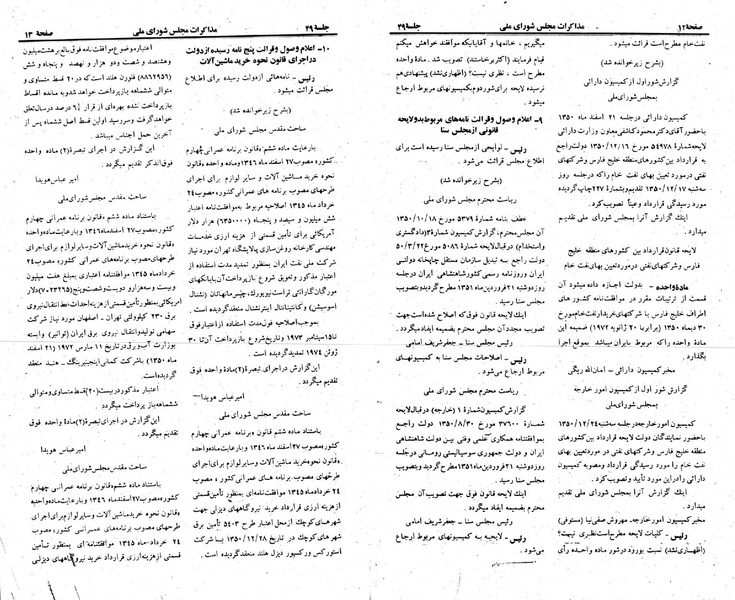 صفحه ۱۲
مذاکرات مجلس شورای ملی
جلسه ۲۹
نفت خام مطرح است قرائت میشود .
(بشرح زیر خوانده شد)
گزارش شور اول از کمیسیون دارائی
بمجلس شورای ملی
کمیسیون دارائی در جلسه ۲۱ اسفند ماه ۱۳۵۰
باحضور آقای دکتر محمود کاشفی معاون وزارت دارائی
لایحه شماره ۵۴۹۷۸ مورخ ۱۳۵۰/۱۲/۱۶ دولت راجع
به قرارداد بین کشورهای منطقه خلیج فارس و شرکتهای
نفتی در مورد تعیین بهای نفت خام را که در جلسه روز
سه شنبه ۱۳۵۰/۱۲/۱۷ تقدیم و بشماره ۲۲۷ چاپ گردیده
مورد رسیدگی قرارداد و عیناً تصویب کرد.
اینک گزارش آنرا بمجلس شورای ملی تقدیم
میدارد .
لایحه قانونی قرارداد بین کشورهای منطقه خلیج
فارس و شرکتهای نفتی در مورد تعیین بهای نفت خام
مادهٔ واحده - بدولت اجازه داده میشود آن
قسمت از ترتیبات مقرر در موافقت نامه کشورهای
اطراف خلیج فارس با شرکتهای خریدار نفت خام مورخ
۳۰ دیماه ۱۳۵۰ (برابر با ۲۰ ژانویه ۱۹۷۲) ضمیمه این
ماده واحده را که مربوط بایران میباشد بموقع اجرا
بگذارد .
مخبر کمیسیون دارائی - امان اله ریگی
گزارش شور اول از کمیسیون امور خارجه
بمجلس شورای ملی
کمیسیون امور خارجه در جلسه سه شنبه ۱۳۵۰/۱۲/۲۴
باحضور نمایندگان دولت لایحه قرارداد بین کشورهای
منطقه خلیج فارس و شرکتهای نفتی در مورد تعیین بهای
نفت خام را مورد رسیدگی قرارداد و مصوبه کمیسیون
دارائی را در این مورد تأیید و تصویب کرد.
اینک گزارش آنرا بمجلس شورای ملی تقدیم
میدارد .
مخبر کمیسیون امور خارجه - مهروش صفی نیا (مستوفی)
رئیس - کلیات لایحه مطرح است نظری نیست؟
(اظهاری نشد) نسبت بورود در شور ماده واحده رأی
میگیریم ، خانمها و آقایانیکه موافقند خواهش میکنم
قیام فرمایند (اکثر برخاستند) تصویب شد. مادهٔ واحده
مطرح است ، نظری نیست؟ (اظهاری نشد) پیشنهادی هم
نرسیده لایحه برای شور دوم بکمیسیونهای مربوط ارجاع
میشود .
۹ـ اعلام وصول و قرائت نامه های مربوط بدو لایحه
قانونی از مجلس سنا
رئیس - لوایحی از مجلس سنا رسیده است برای
اطلاع مجلس قرائت میشود .
(بشرح زیر خوانده شد)
ریاست محترم مجلس شورای ملی
عطف بنامه شمارهٔ ۵۳۷۹ مورخ ۱۳۵۰/۱۰/۱۸
آن مجلس محترم، گزارش کمیسیون شمارهٔ ۳ (دادگستری
واستخدام) در قبال لایحه شمارهٔ ۵۰۸۶ مورخ ۵۰/۳/۲۲
دولت راجع به تبدیل سازمان مستقل چاپخانه دولتی
ایران و روزنامه رسمی کشور شاهنشاهی ایران در جلسه
روز دوشنبه ۲۱ فروردین ماه ۱۳۵۱ مطرح گردید و بتصویب
مجلس سنا رسید .
اینک لایحه قانونی فوق که اصلاح شده است جهت
تصویب مجدد آن مجلس محترم بضمیمه ایفاد میگردد .
رئیس مجلس سنا - جعفر شریف امامی
رئیس - اصلاحات مجلس سنا به کمیسیونهای
مربوط ارجاع میشود .
ریاست محترم مجلس شورای ملی
گزارش کمیسیون شمارهٔ ۱ (خارجه) در قبال لایحه
شمارهٔ ۳۷۶۰۰ مورخ ۱۳۵۰/۸/۳۰ دولت راجع
بموافقتنامه همکاری علمی و فنی بین دولت شاهنشاهی
ایران و دولت جمهوری سوسیالیستی رومانی در جلسه
روز دوشنبه ۲۱ فروردین ماه ۱۳۵۱ مطرح گردید و بتصویب
مجلس سنا رسید .
اینک لایحه قانونی فوق جهت تصویب آن مجلس
محترم بضمیمه ایفاد میگردد .
رئیس مجلس سنا - جعفر شریف امامی
رئیس - لایحه به کمیسیونهای مربوط ارجاع
می شود .
جلسه ۲۹
مذاکرات مجلس شورای ملی
صفحه ۱۳
۱۰ـ اعلام وصول و قرائت پنج نامه رسیده از دولت
در اجرای قانون نحوه خرید ماشین آلات
رئیس - نامه هائی از دولت رسیده برای اطلاع
مجلس قرائت میشود .
(بشرح زیر خوانده شد)
ساحت مقدس مجلس شورای ملی
بارعایت ماده ششم قانون برنامه عمرانی چهارم
کشور، مصوب ۲۷ اسفند ماه ۱۳۴۶ و بارعایت ماده واحده
نحوه خرید ماشین آلات و سایر لوازم برای اجرای
طرحهای مصوب برنامه های عمرانی کشور، مصوب ۲۴
خرداد ماه ۱۳۴۵ اصلاحیه مربوط به موافقتنامه اعتبار
شش میلیون و سیصد و پنجاه (۶۳۵۰۰۰۰) هزار دلار
آمریکائی برای تأمین قسمتی از هزینه ارزی خدمات
مهندسی کارخانه روغن سازی پالایشگاه تهران مورد نیاز
شرکت ملی نفت ایران بمنظور تمدید مدت استفاده از
اعتبار مذکور و تعویق شروع بازپرداخت آن با بانکهای
مورگان گارانتی تراست نیویورک، چیس مانهاتان (نشنال
اسوسیشن) و کانتیننتال اینترنشنال منعقد گردیده است.
بموجب اصلاحیه فوق مدت استفاده از اعتبار فوق
تا ۱۵ سپتامبر ۱۹۷۳ و تاریخ شروع بازپرداخت آن تا ۳۰
ژوئن ۱۹۷۴ تمدید گردیده است.
این گزارش در اجرای تبصرهٔ (۲) مادهٔ واحده فوق
تقدیم میگردد .
امیر عباس هویدا
ساحت مقدس مجلس شورای ملی
باستناد ماده ششم قانون برنامه عمرانی چهارم
کشور، مصوب ۲۷ اسفند ماه ۱۳۴۶ و بارعایت ماده واحده
قانون نحوه خرید ماشین آلات و سایر لوازم برای اجرای
طرحهای مصوب برنامه های عمرانی کشور، مصوب
۲۴ خرداد ماه ۱۳۴۵ موافقت نامه ای بمنظور تأمین قسمتی
از هزینه ارزی قرارداد خرید نیروگاههای دیزلی جهت
شهرهای کوچک از محل اعتبار طرح ۵۴۰۳ تأمین برق
شهرهای کوچک در تاریخ ۱۳۵۰/۱۲/۲۸ با شرکت
استورکس ورکسپور دیزل هلند منعقد گردیده است .
اعتبار موضوع موافقت نامه فوق بالغ بر هشت میلیون
و هشتصد و شصت و دو هزار و نهصد و پنجاه و شش
(۸۸۶۲۹۵۶) فلورن هلند است که در ۲۰ قسط متساوی و
متوالی ششماهه بازپرداخت خواهد شد و به مانده اقساط
بازپرداخت نشده بهره ای از قرار ۶¼ درصد در سال تعلق
خواهد گرفت و سررسید اولین قسط اصل ششماه پس از
آخرین حمل اجناس میباشد.
این گزارش در اجرای تبصرهٔ (۲) ماده واحده
فوق الذکر تقدیم میگردد .
امیر عباس هویدا
ساحت مقدس مجلس شورای ملی
باستناد ماده ششم قانون برنامه عمرانی چهارم
کشور مصوب ۲۷ اسفند ماه ۱۳۴۶ و بارعایت ماده واحده
قانون نحوه خرید ماشین آلات و سایر لوازم برای اجرای
طرحهای مصوب برنامه های عمرانی کشور، مصوب ۲۴
خرداد ماه ۱۳۴۵ موافقتنامه اعتباری بمبلغ هفت میلیون
و بیست و سه هزار و دویست و شصت و پنج (۷۰۲۳۲۶۵) دلار
امریکائی بمنظور تأمین قسمتی از هزینه احداث خط انتقال نیروی
برق ۲۳۰ کیلو ولتی تهران - اصفهان مورد نیاز شرکت
سهامی تولید و انتقال نیروی برق ایران (توانیر) وابسته
بوزارت آب و برق در تاریخ ۱۱ مارس ۱۹۷۲ (۲۱ اسفند
ماه ۱۳۵۰) با شرکت کمانی اینجینیرینگ - هند منعقد
گردیده است.
اعتبار مذکور در بیست (۲۰) قسط متساوی و متوالی
ششماهه بازپرداخت میگردد .
این گزارش در اجرای تبصرهٔ (۲) مادهٔ واحده فوق
تقدیم میگردد .
امیر عباس هویدا
ساحت مقدس مجلس شورای ملی
باستناد ماده ششم قانون برنامه عمرانی چهارم
کشور، مصوب ۲۷ اسفند ماه ۱۳۴۶ و بارعایت ماده واحده
قانون نحوه خرید ماشین آلات و سایر لوازم برای اجرای
طرحهای مصوب برنامه های عمرانی کشور، مصوب
۲۴ خرداد ماه ۱۳۴۵ موافقتنامه ای بمنظور تأمین
قسمتی از هزینه ارزی قرارداد خرید نیروگاههای دیزلی